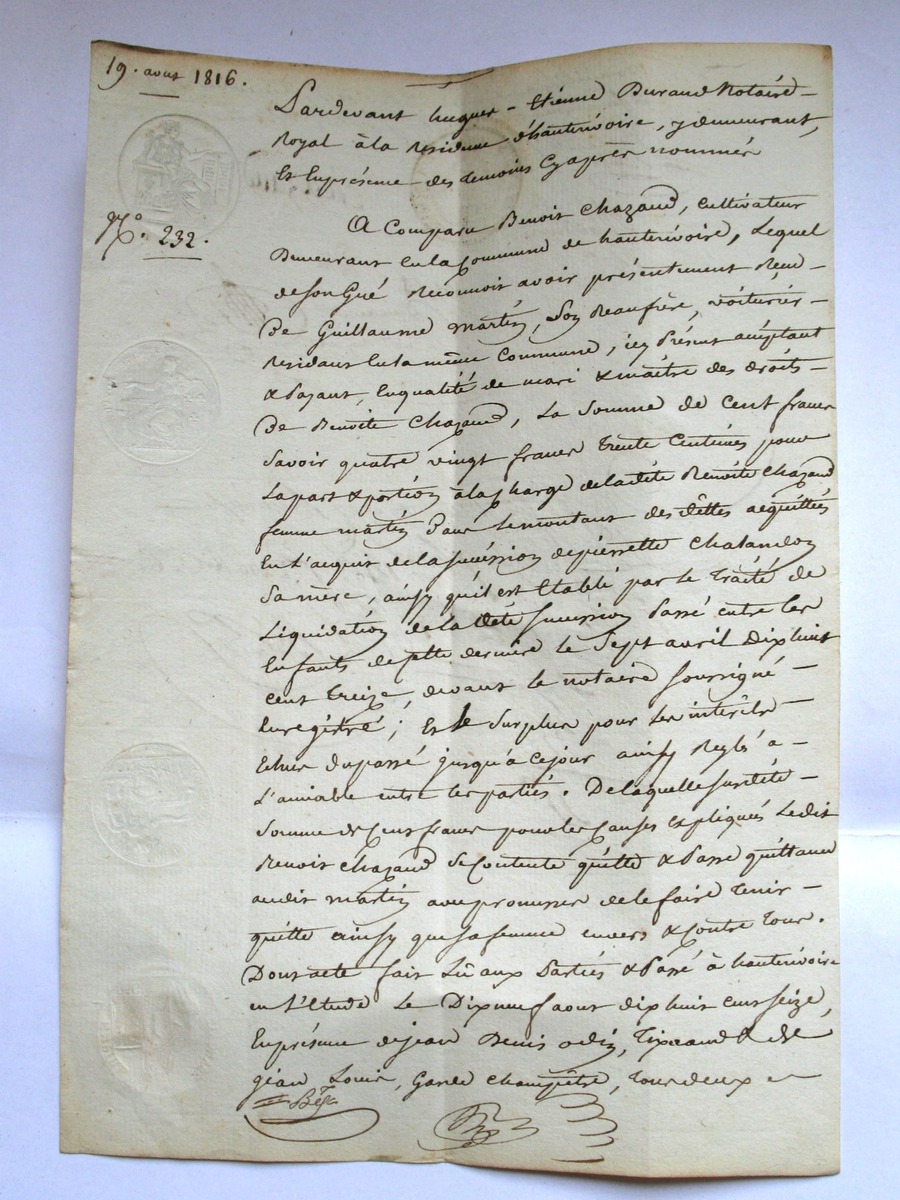 19. aout 1816.
Pardevant hugues-Etienne Durand Notaire
Royal à la Residence d'hauterivoire, y demeurant,
Et Enprésence des temoins Cyaprès nommés
N.° 232.
A Comparu Benoit Chazaud, Cultivateur
Demeurant En la Commune de hauterivoire, Lequel
de son Gré Reconnoit avoir présentement Reçu
De Guillaume Martin, Son Beaufrère, voiturier
Residant En la même Commune, icy Présent acceptant
& Payant, Enqualité de mari & maître des droits
De Benoite Chazaud, La Somme de Cent francs
Savoir quatre vingt francs trente Centimes pour
La part & portion à la Charge de ladite Benoite Chazaud
femme martin Dans le montant des dêttes acquittées
En l'acquit de la Succéssion de pierrette Chalandon
Sa mère, ainsy qu'il est Etabli par le Traité de
Liquidation de la dité Succession Passé entre les
Enfants de Cette derniere le Sept avril Dix huit
cent treize, devant le notaire Soussigné
Enregistré; Et le Surplus pour les interêts
Echus du passé jusqu'à cejour ainsy Reglés a
L'amiable entre les partiés. De laquelle Susdite
Somme de Cent francs pour les Causes Expliqués Ledit
Benoit Chazaud Se Contente quitte & Passe quittance
audit Martin avec promesse de le faire tenir
quitte ainsy que sa femme envers & Contre tous.
Dont acte fait Lû aux Partiés & Passé à hauterivoire
en l'Etude Le Dix neuf aout dix huit cent seize,
Enprésence de jean Denis odin, Tixerand & de
jean Louis, Garde Champêtre, tous deux